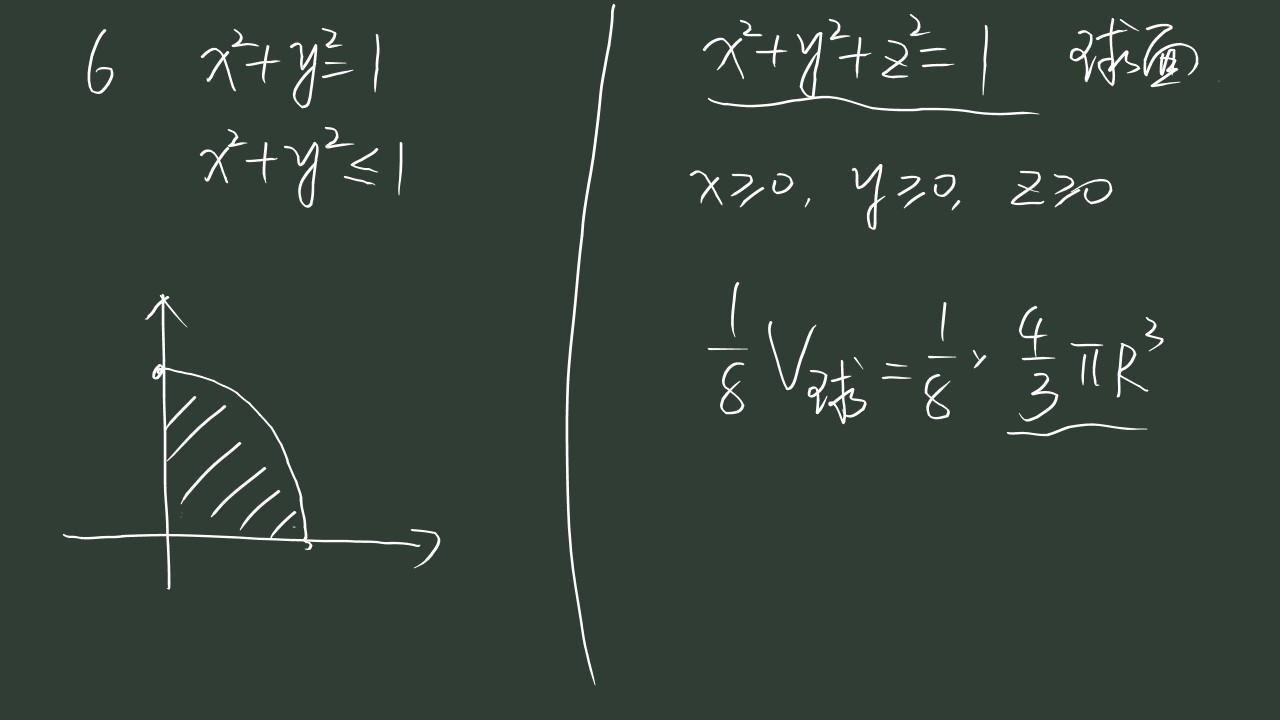 6 x²+y²=1
x²+y²≤1
x²+y²+z²=1 球面
x⩾0, y⩾0, z⩾0
1/8 V球 = 1/8 × 4/3 πR³